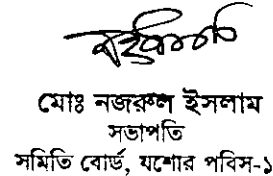 মোঃ নজরুল ইসলাম
সভাপতি
সমিতি বোর্ড, যশোর পবিস-১